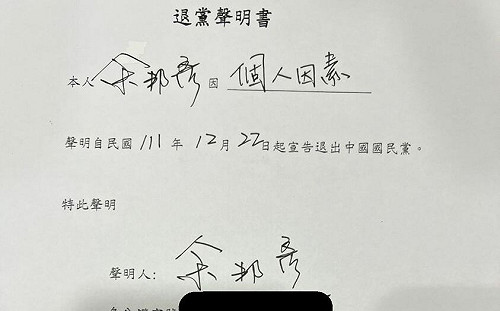 退黨聲明書
本人余邦彥因 個人因素
聲明自民國 111 年 12月 22日起宣告退出中國國民黨。
特此聲明
聲明人: 余邦彥